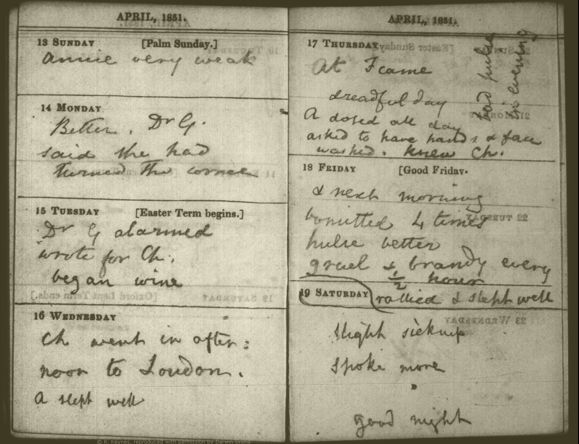 APRIL, 1851.
13 SUNDAY [Palm Sunday.]
Annie very weak
14 MONDAY
Better. Dr G.
said she had
turned the corner
15 TUESDAY [Easter Term begins.]
Dr G alarmed
wrote for Ch.
began wine
16 WEDNESDAY
Ch went in after:
noon to London.
A slept well
APRIL, 1851.
17 THURSDAY
At F came
dreadful day
A dosed all day
asked to have hands & face
washed. knew Ch.
bad pulse
in evening
18 FRIDAY [Good Friday.
& next morning
vomitted 4 times
pulse better
gruel & brandy every
½ hour
19 SATURDAY rallied & slept well
slight
spoke more
good night